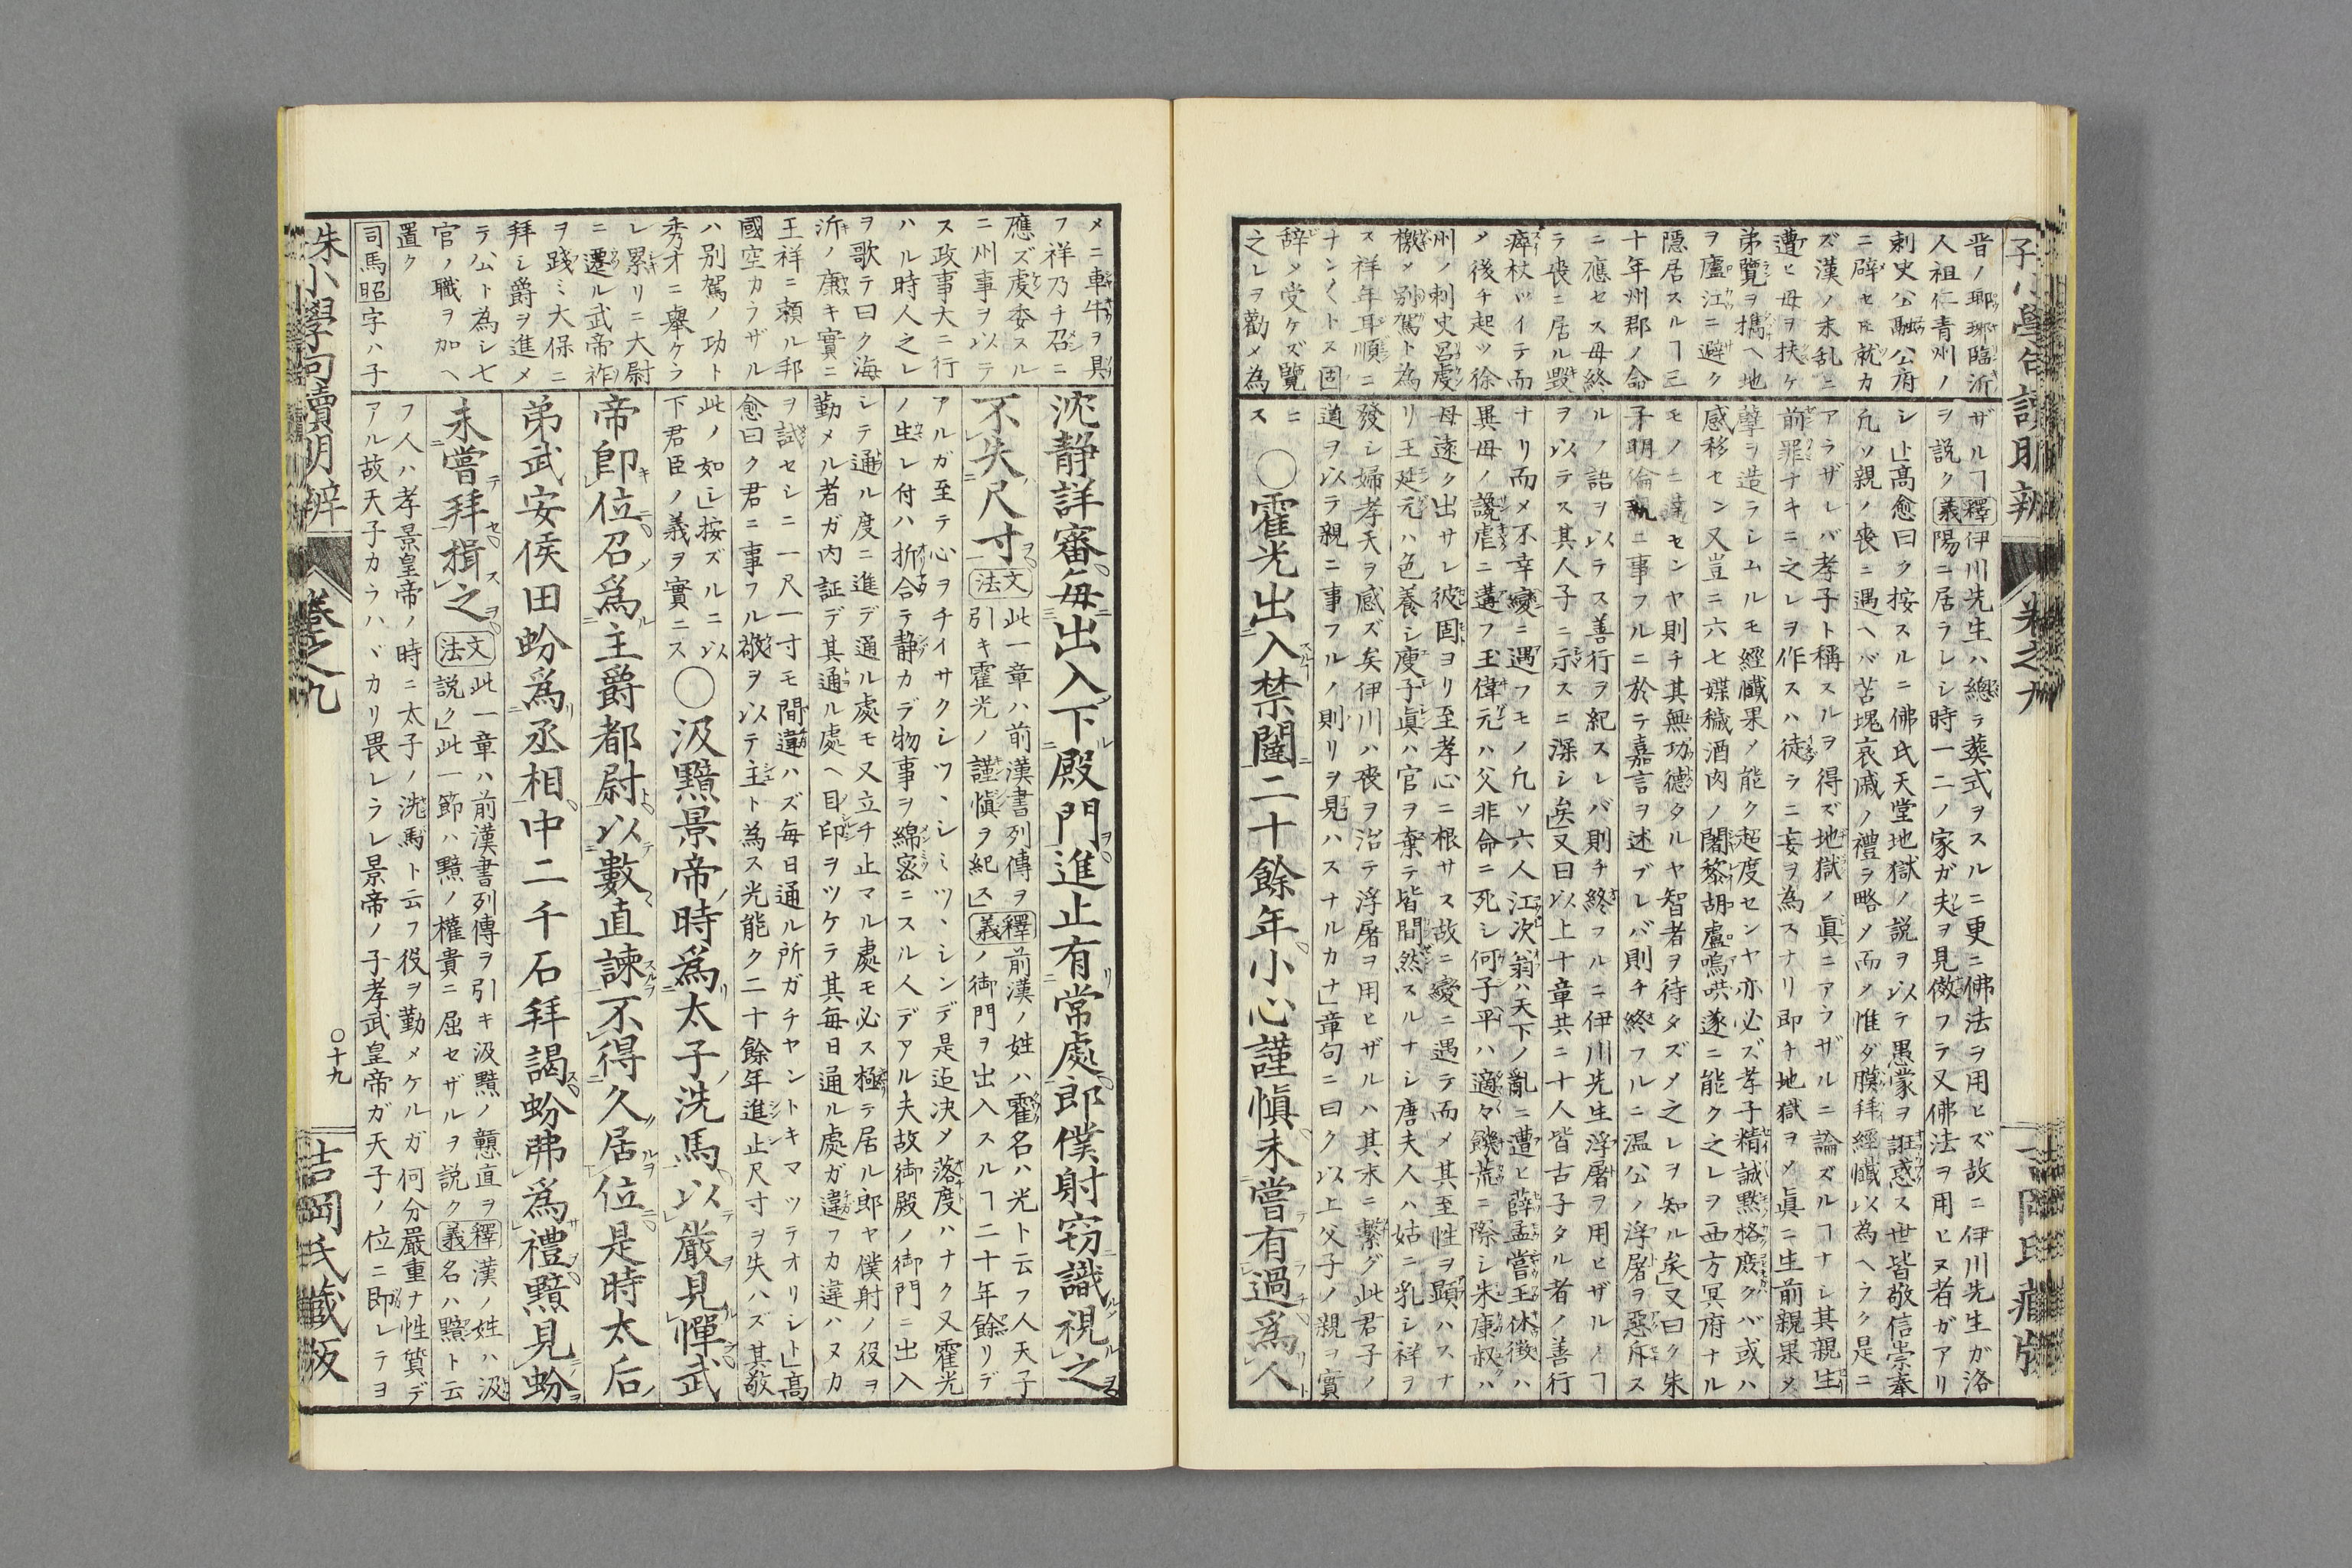 晋ノ瑯琊臨沂
人祖仁青州ノ
刺史公融公府
ニ辟セ𪜈就カ
ズ漢ノ末乱ニ
遭ヒ母ヲ扶ケ
弟覽ヲ擕ヘ地
ヲ廬江ニ避ク
隠居スルヿ三
十年州郡ノ命
ニ應セス母終
ラ喪ニ居ル毀
瘁杖ツイテ而
メ後チ起ツ徐
州ノ刺史呂虔
檄メ別駕ト為
ス祥年耳順ニ
ナンナントス固
辞メ受ケズ覽
之レヲ勸メ為
ザルヿ釋義伊川先生ハ總ラ葬式ヲスルニ更ニ佛法ヲ用ヒズ故ニ伊川先生ガ洛
陽ニ居ラレシ時一二ノ家ガ夫ヲ見傚フラ又佛法ヲ用ヒヌ者ガアリ
シト」高愈曰ク按スルニ佛氏天堂地獄ノ説ヲ以テ愚蒙ヲ誑惑ス世皆敬信崇奉
凢ソ親ノ喪ニ遇ヘバ苫塊哀戚ノ禮ヲ略メ而メ惟ダ膜拜經懺以為ヘラク是ニ
アラザレバ孝子ト稱スルヲ得ズ地獄ノ眞ニアラザルニ論ズルヿナシ其親生
前罪ナキニ之レヲ作スハ徒ラニ妄ヲ為スナリ即チ地獄ヲメ眞ニ生前親果メ
孽ヲ造ラシムルモ經懺果メ能ク超度センヤ亦必ズ孝子精誠黙格度クバ或ハ
感移セン又豈ニ六七媟穢酒肉ノ闍黎胡盧嗚哄遂ニ能ク之レヲ西方冥府ナル
モノニ達センヤ則チ其無功德タルヤ智者ヲ待タズメ之レヲ知ル矣」又曰ク朱
子明倫親ニ事フルニ於テ嘉言ヲ述ブレバ則チ終フルニ温公ノ浮屠ヲ惡斥ス
ルノ語ヲ以ラス善行ヲ紀スレバ則チ終フルニ伊川先生浮屠ヲ用ヒザルノヿ
ヲ以テス其人子ニ示スニ深シ矣」又曰以上十章共ニ十人皆古子タル者ノ善行
ナリ而メ不幸變ニ遇フモノ凢ソ六人江次翁ハ天下ノ亂ニ遭ヒ薛孟嘗王休徴ハ
異母ノ讒虐ニ遘フ王偉元ハ父非命ニ死シ何子平ハ適々饑荒ニ際シ朱康叔ハ
母遠ク出サレ彼固ヨリ至孝心ニ根サス故ニ變ニ遇テ而メ其至性ヲ顯ハスナ
リ王延元ハ色養シ庾子眞ハ官ヲ棄テ皆間然スルナシ唐夫人ハ姑ニ乳シ祥ヲ
發シ婦孝天ヲ感ズ矣伊川ハ喪ヲ治テ浮屠ヲ用ヒザルハ其末ニ繋グ此君子ノ
道ヲ以ラ親ニ事フルノ則リヲ見ハスナルカナ」章句ニ曰ク以上父子ノ親ヲ實
ニス ○霍光出入禁闥二十餘年小心謹愼未嘗有過爲人
メニ車牛ヲ具
フ祥乃チ召ニ
應ズ虔委スル
ニ州事ヲ以テ
ス政事大ニ行
ハル時人之レ
ヲ歌テ曰ク海
沂ノ康キ實ニ
王祥ニ頼ル邦
國空カラザル
ハ別駕ノ功ト
秀才ニ舉ケラ
レ累リニ大尉
ニ遷ル武帝祚
ヲ踐ミ大保ニ
拜シ爵ヲ進メ
ラ公ト為シ七
官ノ職ヲ加ヘ
置ク
司馬昭字ハ子
沈靜詳審毎出入下殿門進止有常處郎僕射窃識視之
不失尺寸 文法此一章ハ前漢書列傳ヲ引キ霍光ノ謹愼ヲ紀ス」釋義前漢ノ姓ハ霍名ハ光ト云フ人天子ノ御門ヲ出入スルヿ二十年餘リデ
アルガ至テ心ヲチイサクシツヽシミツヽシンデ是迄决メ落度ハナク又霍光
ノ生レ付ハ折合テ靜カデ物事ヲ綿密ニスル人デアル夫故御殿ノ御門ニ出入
シテ通ル度ニ進デ通ル處モ又立チ止マル處モ必ス極テ居ル郎ヤ僕射ノ役ヲ
勤メル者ガ内証デ其通ル處ヘ目印ヲツケラ其毎日通ル處ガ違フカ違ハヌカ
ヲ試セシニ一尺一寸モ間違ハズ毎日通ル所ガチヤントキマツテオリシト」高
愈曰ク君ニ事フル敬ヲ以テ主ト為ス光能ク二十餘年進止尺寸ヲ失ハズ其敬
此ノ如シ」按ズルニ以下君臣ノ義ヲ實ニス ○汲黯景帝時爲太子洗馬以嚴見憚武
帝卽位召爲主爵都尉以數直諫不得久居位是時太后
弟武安侯田蚡爲丞相中二千石拜謁蚡弗爲禮黯見蚡
未嘗拜揖之 文法此一章ハ前漢書列傳ヲ引キ汲黯ノ戇直ヲ説ク」此一節ハ黯ノ權貴ニ屈セザルヲ説ク 釋義漢ノ姓ハ汲名ハ黯ト云
フ人ハ孝景皇帝ノ時ニ太子ノ洗馬ト云フ役ヲ勤メケルガ何分嚴重ナ性質デ
アル故天子カラハヾカリ畏レラレ景帝ノ子孝武皇帝ガ天子ノ位ニ即レテヨ
朱小學句讀明辨 卷之九 ○十九 吉岡氏藏板